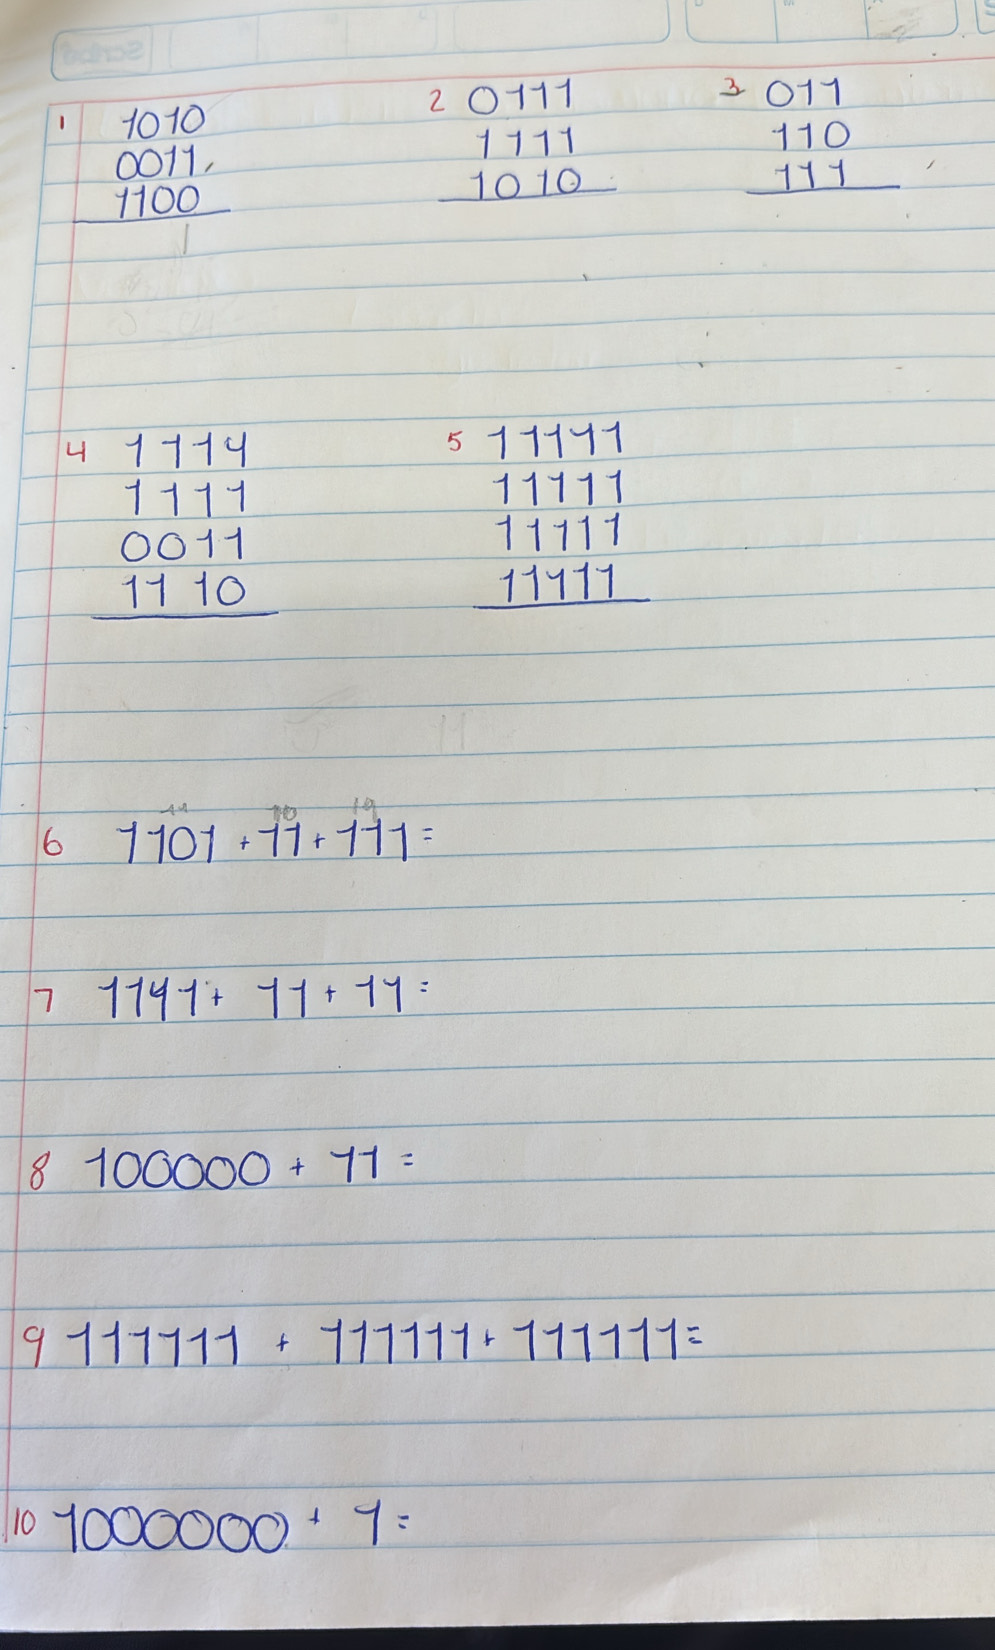 1 1010 2 0111 3 011
0011 1111 110
1100 1010 111
1
4 1111 5 11111
1111 11111
0011 11111
1110 11111
6 1101 + 11 + 111 =
7 1111 + 11 + 11 =
8 100000 + 11 =
9 111111 + 111111 + 111111 =
10 1000000 + 1 =